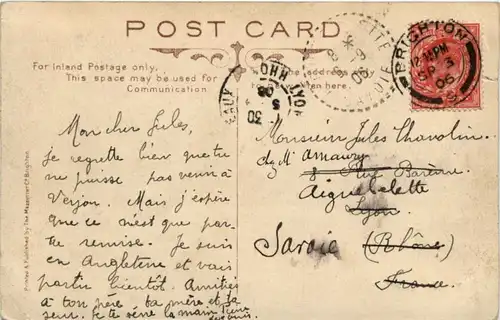 POST CARD
For Inland Postage only,
This space may be used for
Communication.
The address only
Here.
BRIGHTON
12 PM
SP 3
06
Printed & Published by The Mezzotint Co Brighton.
Mon cher Jules,
je regrette bien que tu
ne puisse pas venir à
Mais j'espère
que ce n'est que par-
tie remise. Je suis
en Angletene et vais
partir bientôt. Amitiés
à ton père ta mère et ta
seur. Je te sène la main
Monsieur Jules Chavolin
chz Mr Amaury
8 Rue Barème
Aiguebelette
Lyon
Savoie (Rhône)
France